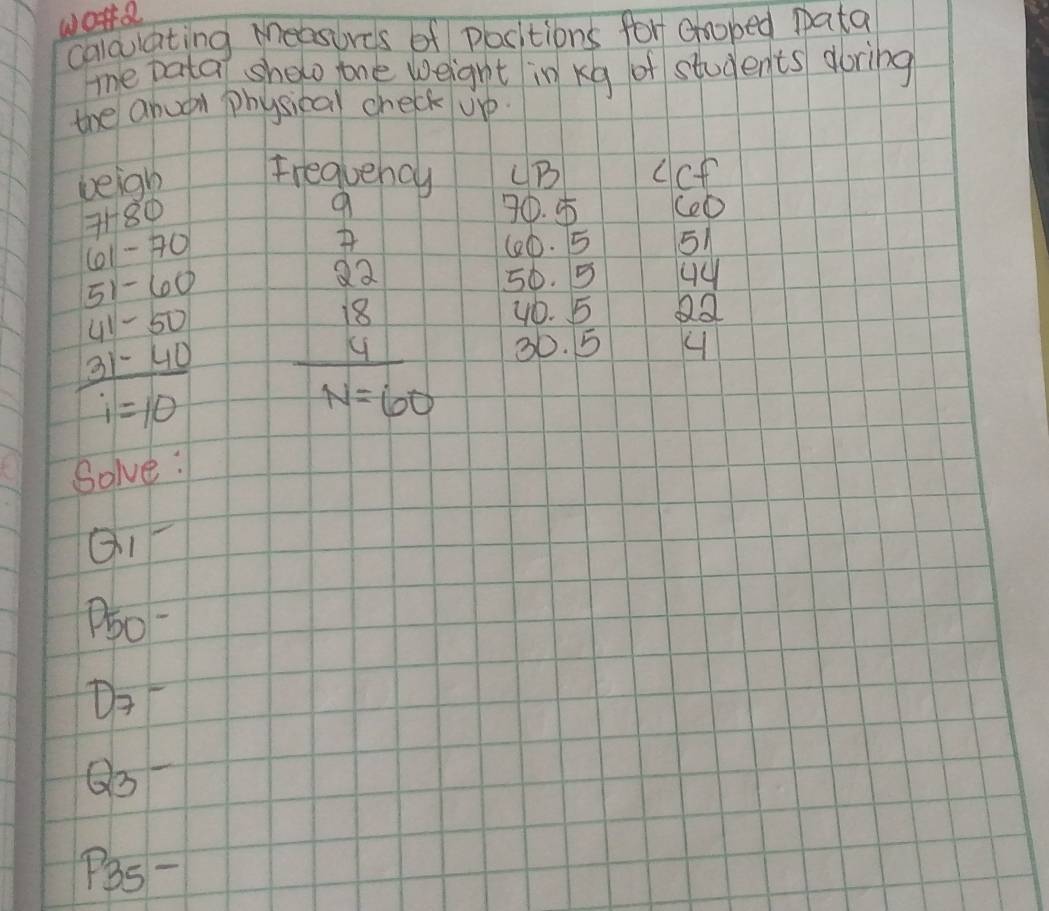 WO#2
Calculating Measures of Positions for Grooped Data
The Data show the weight in Kg of students during
the anual physical check up.
weigh Frequency LB <cf
71-80 9 70.5 60
61-70 7 60.5 51
51-60 22 50.5 44
41-50 18 40.5 22
31-40 4 30.5 4
i=10 N=60
Solve:
Q1-
P50-
D7-
Q3-
P35-